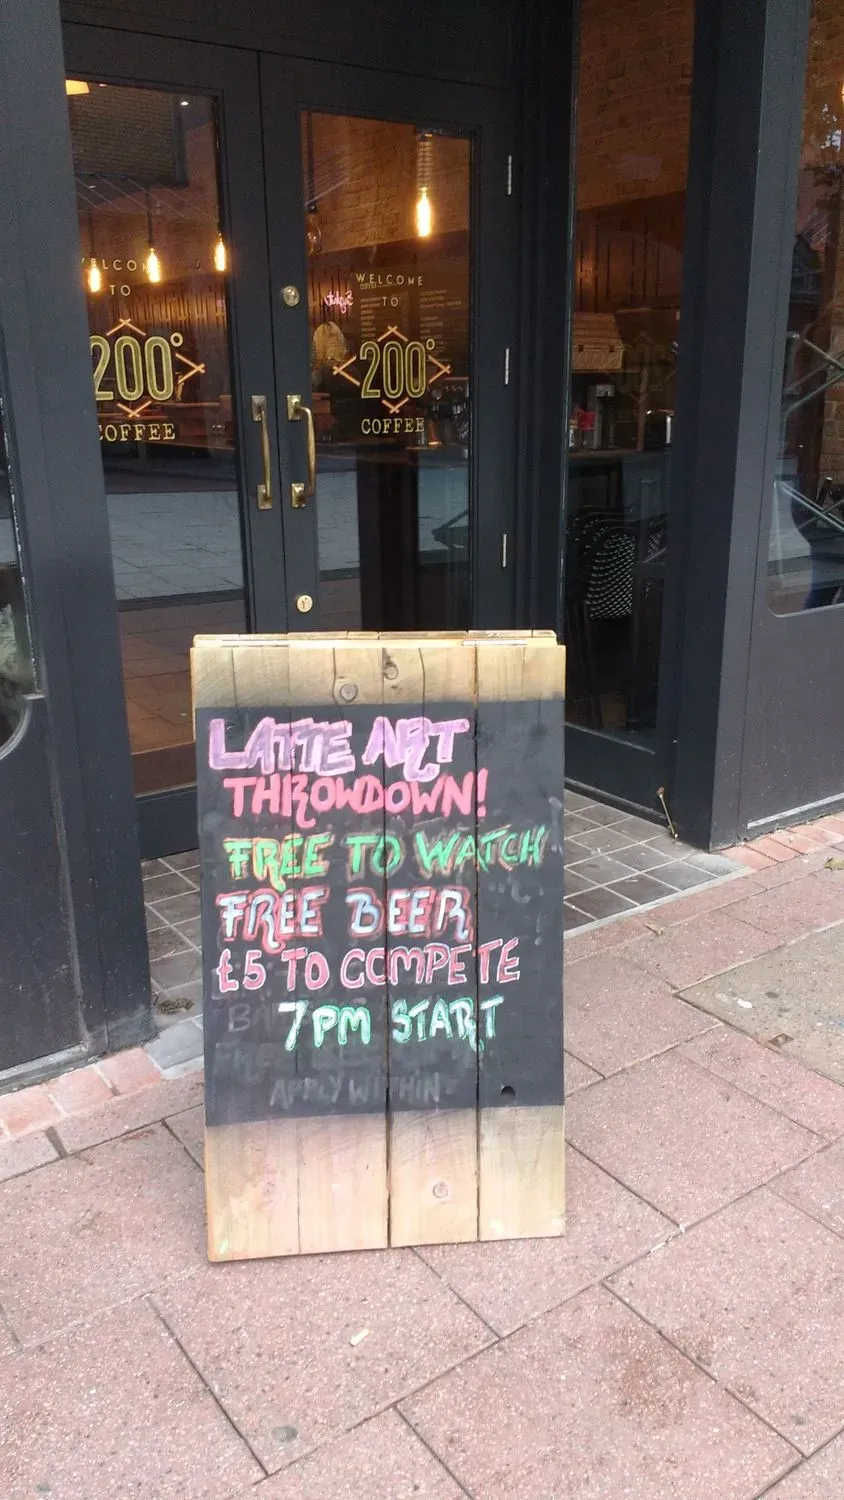 WELCOME
TO
200°
COFFEE
WELCOME
TO
200°
COFFEE
LATTE ART
THROWDOWN!
FREE TO WATCH
FREE BEER
£5 TO COMPETE
7PM START
APPLY WITHIN